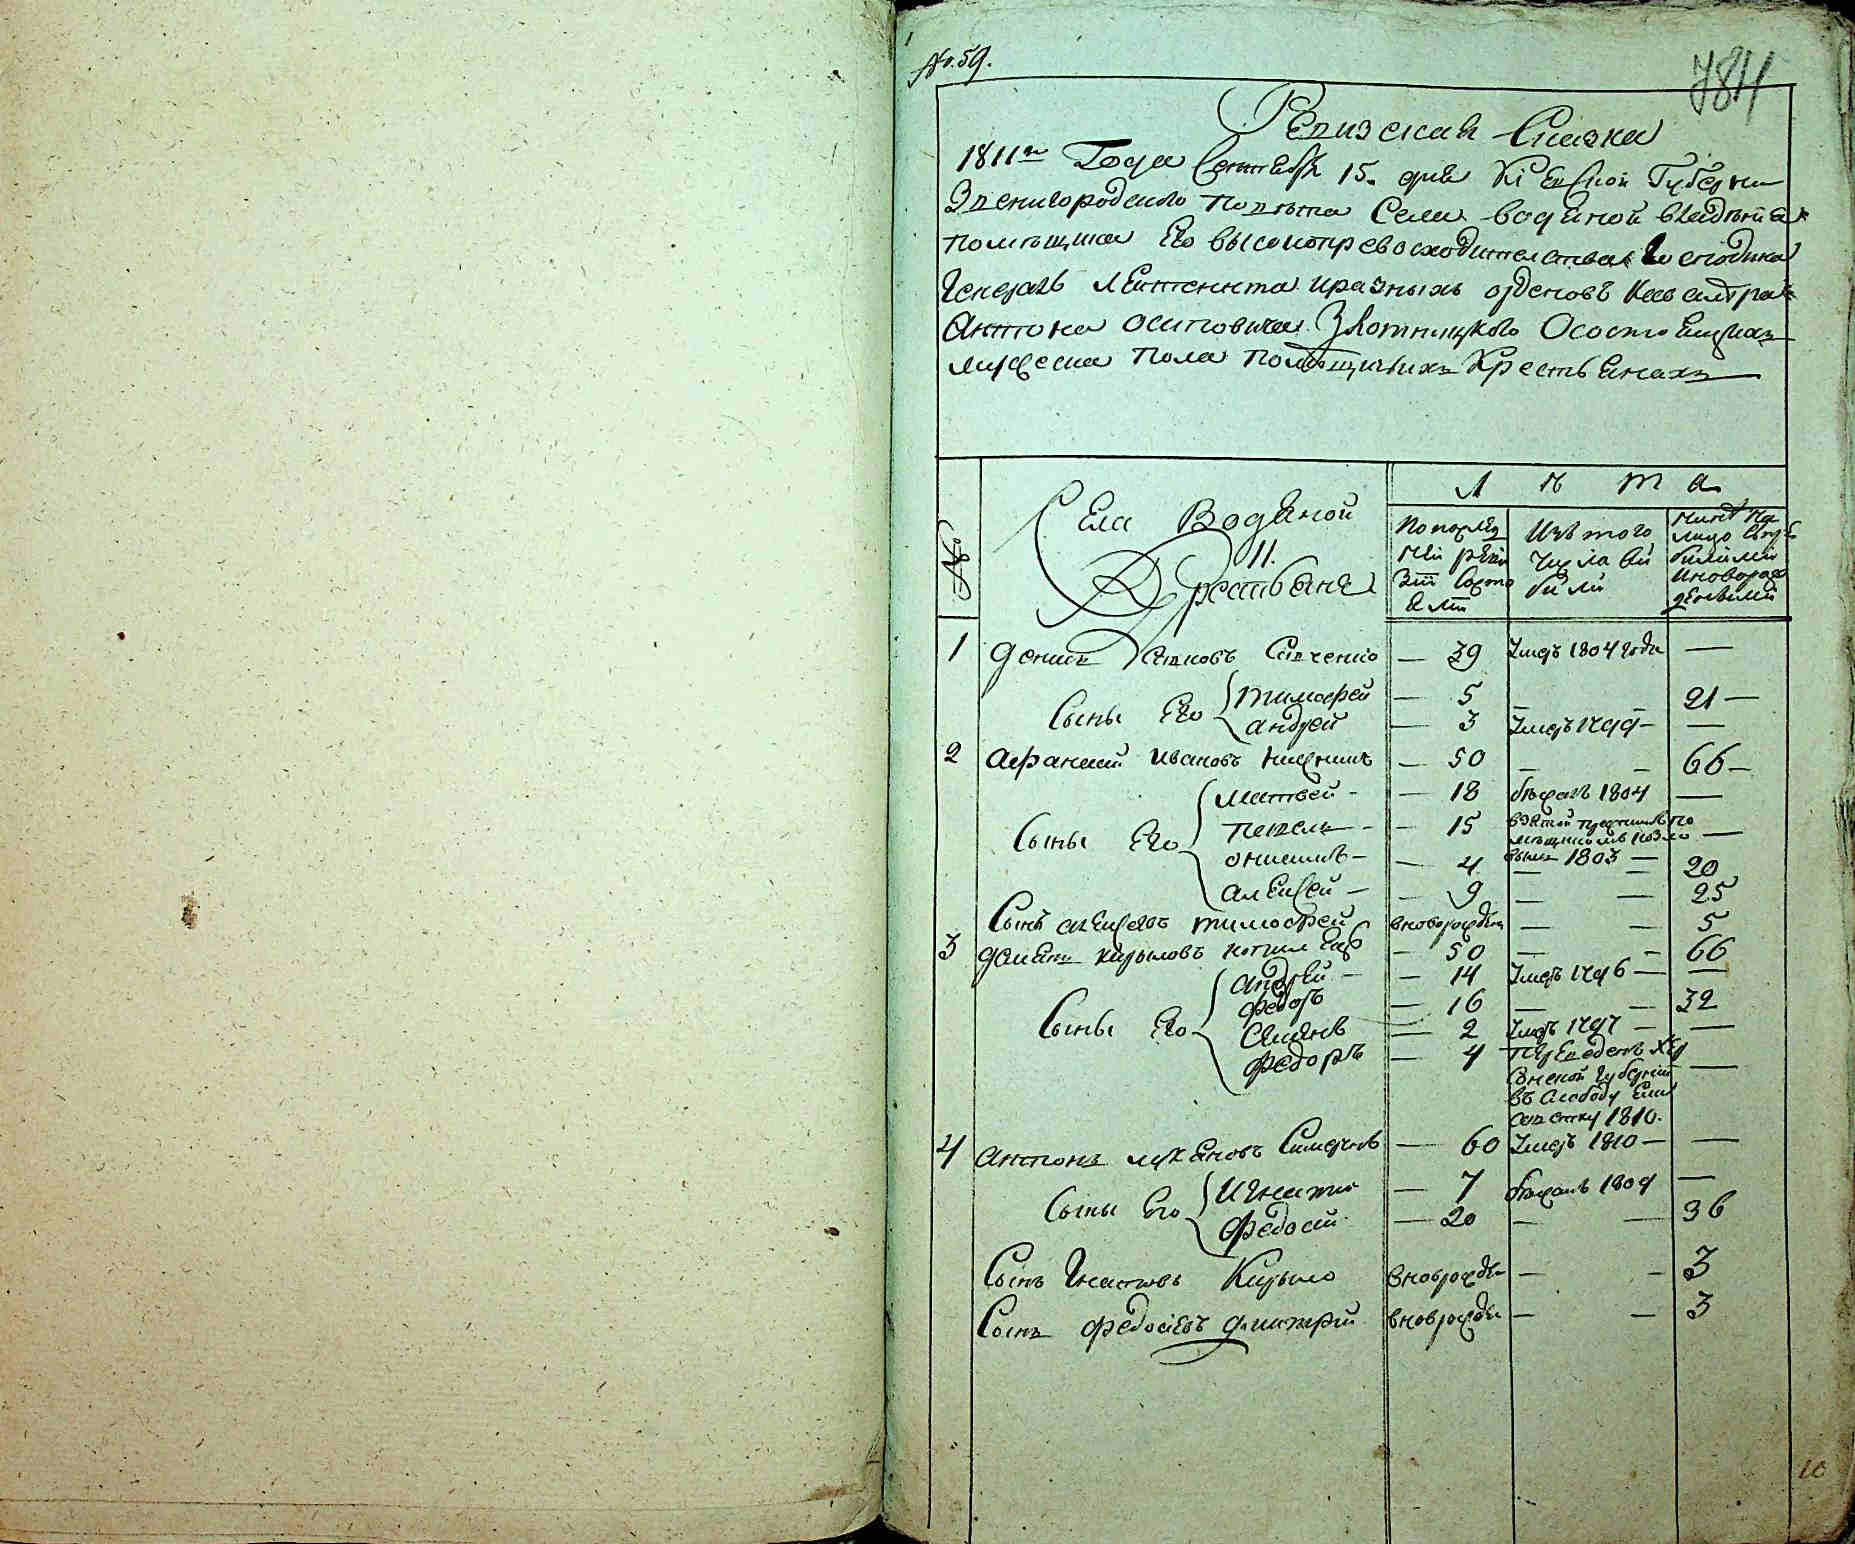 № 59.
784
Ревизская Сказка
1811го Года Сентября 15. дня Киевской Губернии
Звенигородского Повета Села Водяной владения
помещика Его высокопревосходительства Господина
Генерал Лейтенанта и разныхъ орденовъ Кавалера
Антона Осиповича Злотницкого О состоящихъ
мужеска пола помещичьихъ Крестьянахъ
№
Села Водяной
Крестьяне
Лета
По последней ревизии состояло
Изъ того числа выбыло
Ныне на лицо
1 Денисъ Савченко — 39 Умеръ 1804 Года —
Сыны Его
Тимофей — 5 — — 21 —
Андрей — 3 Умеръ 1799 — —
2 Афанасий Ивановъ — 50 — — 66 —
Сыны Его
Матвей — — 18 бежалъ 1804 —
— 15 1803 —
Онисимъ — — 4 — — 20
Алексей — — 9 — — 25
Сынъ Алексеевъ Тимофей вноворожденъ — — 5
3 Демянъ Кириловъ — 50 — — 66
Сыны Его
Андрей — — 14 Умеръ 1796 — —
Федоръ — 16 — — 32
Семенъ — 2 Умеръ 1797 — —
Федоръ — 4 Переведенъ Хер
сонской Губернии —
въ Слободу
1810.
4 Антонъ Лукяновъ — 60 Умеръ 1810 — —
Сыны Его
Игнатий — 7 бежалъ 1804 —
Федосий — 20 — — 36
Сынъ Игнатовъ Кирыло вноврожде — — 3
Сынъ Федосиевъ Дмитрий вноврожде — — 3
10